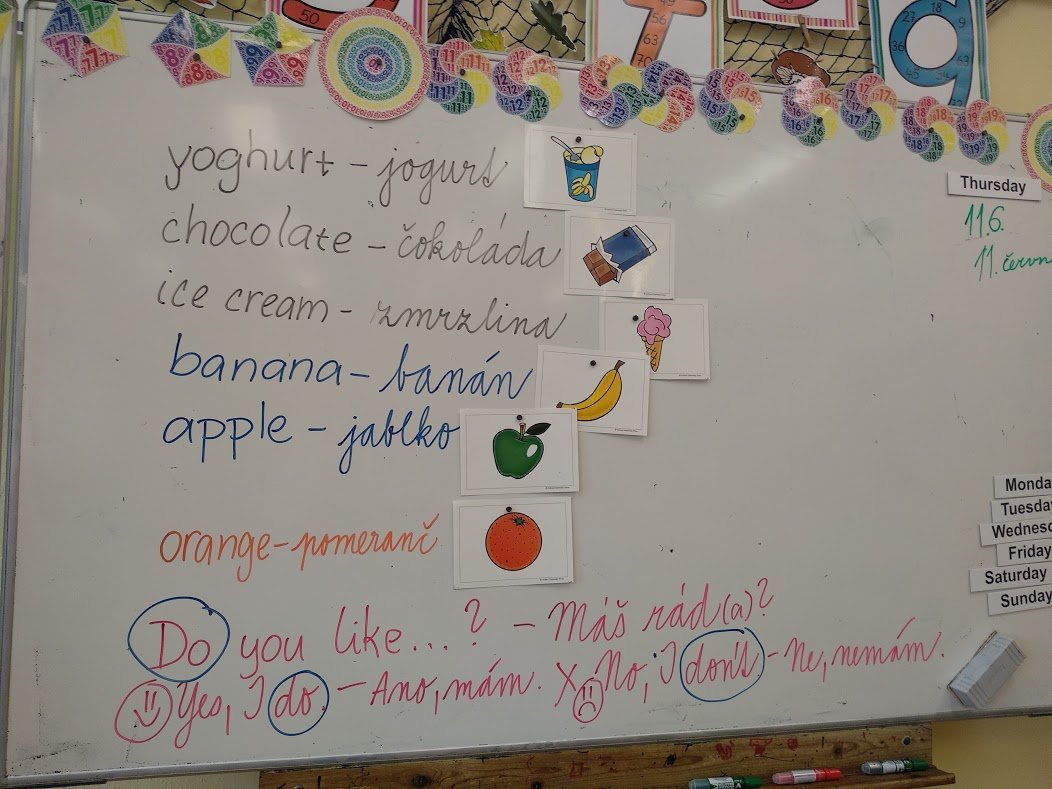 50
49
56
63
70
27
18
9
36
45
54
yoghurt – jogurt
chocolate – čokoláda
ice cream – zmrzlina
banana – banán
apple – jablko
orange – pomeranč
Do you like...? – Máš rád(a)?
Yes, I do. – Ano, mám. X No, I don't – Ne, nemám.
Thursday
11.6.
11. červn
Monda
Tuesday
Wednesd
Friday
Saturday
Sunday